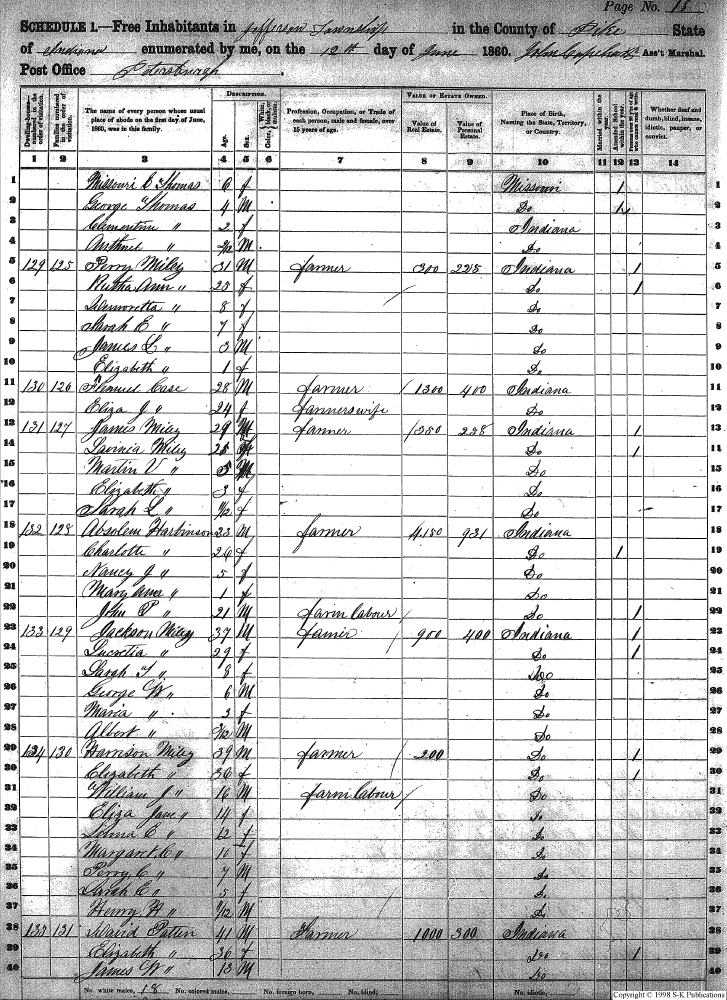 Page No. 18
SCHEDULE 1.—Free Inhabitants in Jefferson Township in the County of Pike State
of Indiana enumerated by me, on the 12th day of June 1860. John Ass't Marshal.
Post Office Petersburgh.
DESCRIPTION. VALUE OF ESTATE OWNED.
Dwelling-houses— numbered in the order of visitation. Families numbered in the order of visitation. The name of every person whose usual place of abode on the first day of June, 1860, was in this family. Age. Sex. Color, White, black, or mulatto. Profession, Occupation, or Trade of each person, male and female, over 15 years of age. Value of Real Estate. Value of Personal Estate. Place of Birth, Naming the State, Territory, or Country. Married within the year. Attended School within the year. Whether deaf and dumb, blind, insane, idiotic, pauper, or convict.
1 2 3 4 5 6 7 8 9 10 11 12 13 14
1 Missouri C Thomas 6 f Missouri 1
2 George Thomas 4 M Do 1 2
3 " 2 f Indiana 3
4 " M Do 4
5 129 125 Perry Miley 31 M farmer 300 225 Indiana 1 5
6 Rutha Ann " 25 f Do 1 6
7 " 8 f Do 7
8 Sarah E " 7 f Do 8
9 James L " 3 M Do 9
10 Elizabeth " 1 f Do 10
11 130 126 Case 28 M farmer 1300 400 Indiana 11
12 Eliza J " 24 f farmers wife Do 12
13 131 127 James Miley 29 M farmer 350 258 Indiana 1 13
14 Lavinia Miley 25 Do 1 14
15 Martin V " 5 M Do 15
16 Elizabeth " 3 f Do 16
17 Sarah L " f Do 17
18 132 128 Absolem Harbinson 23 M farmer 4150 931 Indiana 18
19 Charlotte " 26 f Do 1 19
20 Nancy J " 5 f Do 20
21 Mary Ann " 1 f Do 21
22 John P " 21 M farm labour Do 1 22
23 133 129 Jackson Miley 37 M farmer 900 400 Indiana 1 23
24 Lucretia " 29 f Do 1 24
25 Sarah " 8 f Do 25
26 George W " 6 M Do 26
27 Maria " 3 f Do 27
28 Albert " M Do 28
29 134 130 Harrison Miley 39 M farmer 200 Do 1 29
30 Elizabeth " 36 f Do 1 30
31 William J " 16 M farm labour Do 31
32 Eliza Jane " 14 f Do 32
33 E " 12 f Do 33
34 Margaret C " 10 f Do 34
35 Perry C " 7 M Do 35
36 Sarah E " 5 f Do 36
37 Henry H " M Do 37
38 135 131 David Patten 41 M Farmer 1000 300 Indiana 38
39 Elizabeth " 36 f Do 1 39
40 James W " 13 M Do 40
No. white males, 18 No. colored males, No. foreign born, No. blind, No. idiotic,
Copyright © 1998 S-K Publications